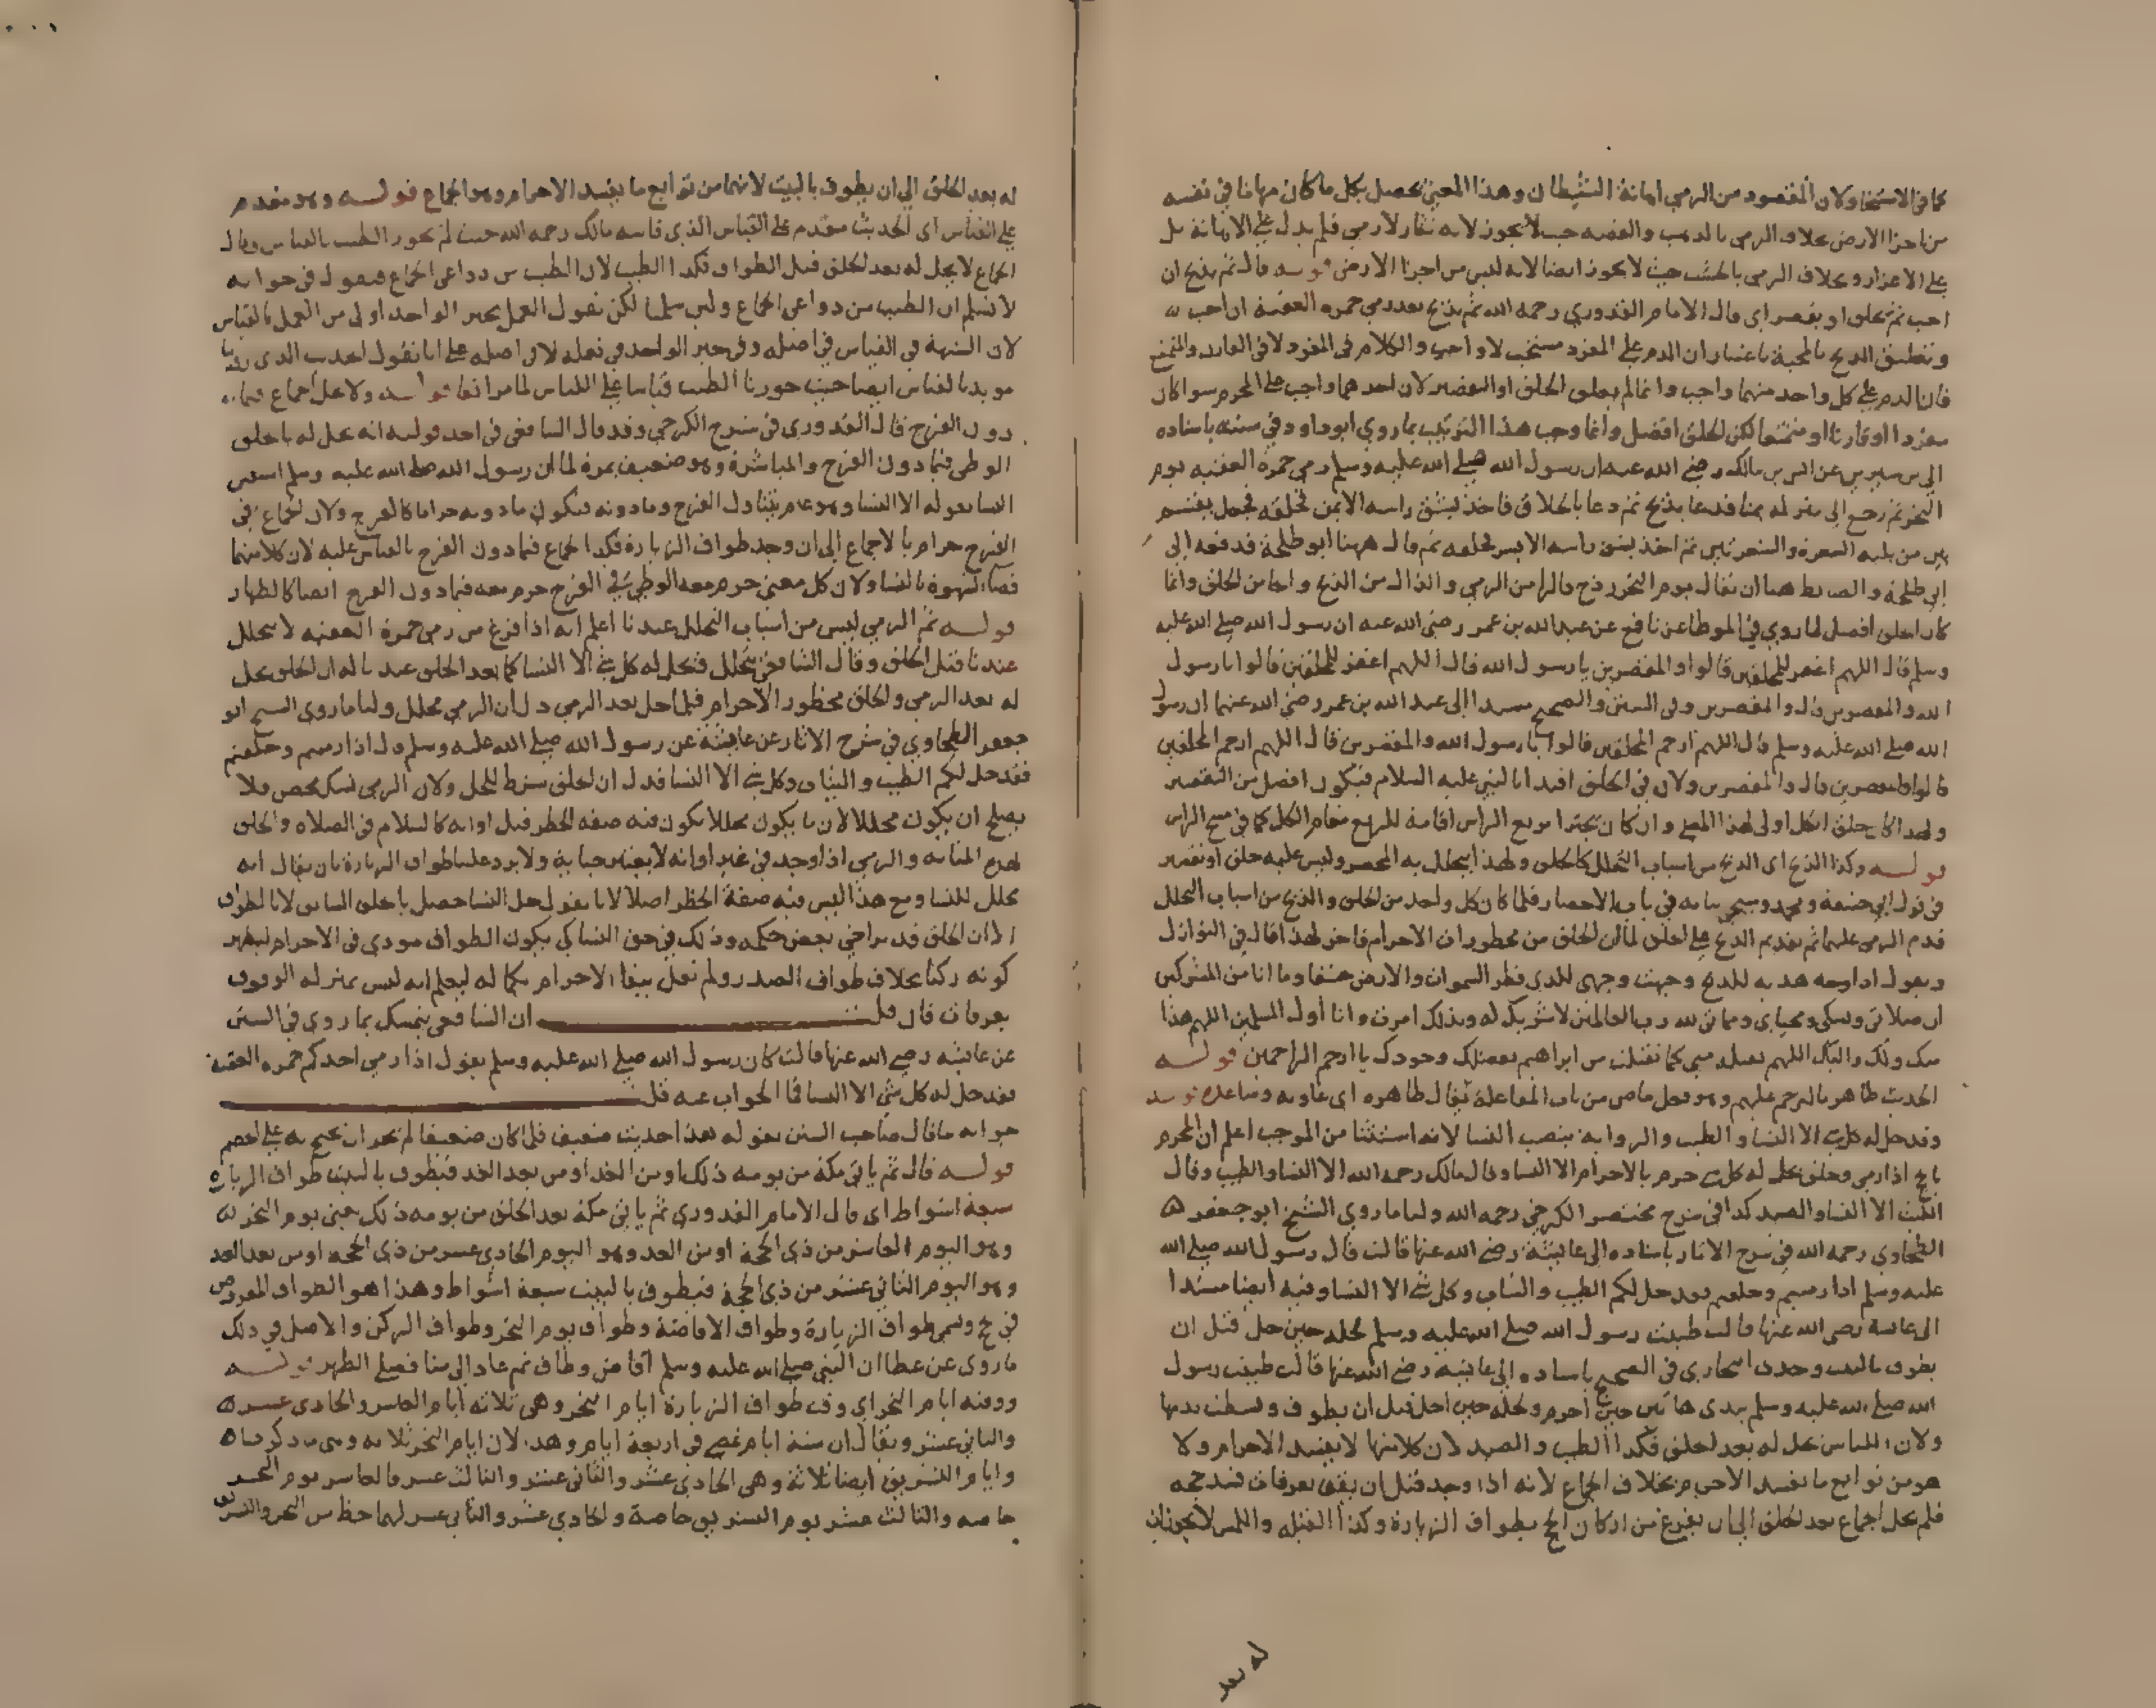 كما في الاستنجا ولان المقصود من الرمي اهانة الشيطان وهذا المعنى يحصل بكل ما كان مهانا في نفسه
من اجزا الارض بخلاف الرمي بالذهب والفضه حيث لا يجوز لانه نثار لا رمي فلم يدل على الاهانة بل
على الاعزاز وبخلاف الرمي بالخشب حيث لا يجوز ايضا لانه ليس من اجزا الارض قوله قال ثم يذبح ان
احب ثم يحلق او يقصر اي قال الامام القدوري رحمه الله ثم يذبح بعد رمي جمره العقبة ان احب
وتعليق الذبح بالمحبة باعتبار ان الدم على المفرد مستحب لا واجب والكلام في المفرد لا في القارن والمتمتع
فان الدم على كل واحد منهما واجب وانما لم يعلق الحلق او التقصير لان احدهما واجب على المحرم سوا كان
مفردا او قارنا او متمتعا لكن الحلق افضل وانما وجب هذا الترتيب بما روي ابو داود في سننه باسناده
الي بن سيرين عن انس بن مالك رضي الله عنه ان رسول الله صلى الله عليه وسلم رمي جمرة العقبه يوم
النحر ثم رجع الى منزله بمنا فدعا بذبح ثم دعا بالحلاق فاخذ بشق راسه الايمن فحلقه فجعل يقسم
بين من يليه الشعرة والشعرتين ثم اخذ بشق راسه الايسر فحلقه ثم قال ههنا ابو طلحة فدفعه الى
ابي طلحة والضابط هنا ان يقال يوم النحر رذح فالرا من الرمي والذال من الذبح والحا من الحلق وانما
كان الحلق افضل لما روي في الموطا عن نافع عن عبد الله بن عمر رضي الله عنه ان رسول الله صلى الله عليه
وسلم قال اللهم اغفر للمحلقين قالوا والمقصرين يا رسول الله قال اللهم اغفر للمحلقين قالوا يا رسول
الله والمقصرين قال والمقصرين وفي السنن والصحيح مسندا الى عبد الله بن عمر رضي الله عنهما ان رسول
الله صلى الله عليه وسلم قال اللهم ارحم المحلقين قالوا يا رسول الله والمقصرين قال اللهم ارحم المحلقين
قالوا والمقصرين قال والمقصرين ولان في الحلق اقتدا بالنبي عليه السلام فيكون افضل من التقصير
ولهذا كان حلق الكل اولى لهذا المعنى وان كان يجتزا بربع الراس اقامة للربع مقام الكل كما في مسح الراس
قوله وكذا الذبح اي الذبح من اسباب التحلل كالحلق ولهذا يتحلل به المحصر وليس عليه حلق او تقصير
في قول ابي حنيفة ومحمد وسيجي بيانه في باب الاحصار فلما كان كل واحد من الحلق والذبح من اسباب التحلل
قدم الرمي عليهما ثم تقديم الذبح على الحلق لما ان الحلق من محظورات الاحرام فاخر لهذا قال في النوازل
ويقول اذا وجه هديه للذبح وجهت وجهي للذي فطر السموات والارض حنيفا وما انا من المشركين
ان صلاتي ونسكي ومحياي ومماتي لله رب العالمين لا شريك له وبذلك امرت وانا اول المسلمين اللهم هذا
منك ولك واليك اللهم تقبله مني كما تقبلت من ابراهيم بفضلك وجودك يا ارحم الراحمين قوله
الحديث ظاهر بالترحم عليهم وهو فعل ماض من باب المفاعلة يقال ظاهره اي عاونه وساعده قوله
وقد حل له كل شي الا النسا والطيب والرواية بنصب النسا لانه استثنا من الموجب اعلم ان المحرم
بالحج اذا رمي وحلق يحل له كل شي حرم بالاحرام الا النسا وقال مالك رحمه الله الا النسا والطيب وقال
الليث الا النسا والصيد كذا في شرح مختصر الكرخي رحمه الله ولنا ما روي الشيخ ابو جعفر
الطحاوي رحمه الله في شرح الاثار باسناده الى عائشة رضي الله عنها قالت قال رسول الله صلى الله
عليه وسلم اذا رميتم وحلقتم فقد حل لكم الطيب والثياب وكل شي الا النسا وفيه ايضا مسندا
الى عائشة رضي الله عنها قالت طيبت رسول الله صلى الله عليه وسلم لحله حين حل قبل ان
يطوف بالبيت وحدث البخاري في الصحيح باسناده الى عائشة رضي الله عنها قالت طيبت رسول
الله صلى الله عليه وسلم بيدي هاتين حين احرم ولحله حين احل قبل ان يطوف وبسطت يديها
ولان اللباس يحل له بعد الحلق فكذا الطيب والصيد لان كلا منهما لا يفسد الاحرام ولا
هو من توابع ما يفسد الاحرام بخلاف الجماع لانه اذا وجد قبل ان يقف بعرفات فسد حجه
فلم يحل الجماع بعد الحلق الى ان يفرغ من اركان الحج بطواف الزيارة وكذا القبلة واللمس لا يجوزان
له بعد
له بعد الحلق الي ان يطوف بالبيت لانهما من توابع ما يفسد الاحرام وهو الجماع قوله وهو مقدم
على القياس اي الحديث مقدم على القياس الذي قاسه مالك رحمه الله حيث لم يجوز الطيب بالقياس وقال
الجماع لا يحل له بعد الحلق قبل الطواف فكذا الطيب لان الطيب من دواعي الجماع فنقول في جوابه
لا نسلم ان الطيب من دواعي الجماع ولئن سلمنا لكن نقول العمل بخبر الواحد اولى من العمل بالقياس
لان الشبهة في القياس في اصله وفي خبر الواحد في نقله لا في اصله على انا نقول الحديث الذي روينا
مويد بالقياس ايضا حيث جوزنا الطيب قياسا على اللباس لما مر انفا قوله ولا يحل الجماع فيما
دون الفرج قال القدوري في شرح الكرخي وقد قال الشافعي في احد قوليه انه يحل له بالحلق
الوطي فيما دون الفرج والمباشرة وهو ضعيف بمرة لما ان رسول الله صلى الله عليه وسلم استثنى
النسا بقوله الا النسا وهو عام يتناول الفرج وما دونه فيكون ما دونه حراما كالفرج ولان الجماع في
الفرج حرام بالاجماع الى ان وجد طواف الزيارة فكذا الجماع فيما دون الفرج بالقياس عليه لان كلا منهما
قضا الشهوة بالنسا ولان كل معنى حرم معه الوطي في الفرج حرم معه فيما دون الفرج ايضا كالظهار
قوله ثم الرمي ليس من اسباب التحلل عندنا اعلم انه اذا فرغ من رمي جمرة العقبه لا يتحلل
عندنا قبل الحلق وقال الشافعي يتحلل فيحل له كل شي الا النسا كما بعد الحلق عندنا له ان الحلق يحل
له بعد الرمي والحلق محظور الاحرام فلما حل بعد الرمي دل ان الرمي محلل ولنا ما روي الشيخ ابو
جعفر الطحاوي في شرح الاثار عن عايشة عن رسول الله صلى الله عليه وسلم قال اذا رميتم وحلقتم
فقد حل لكم الطيب والثياب وكل شي الا النسا فدل ان الحلق شرط للحل ولان الرمي نسك محض فلا
يصلح ان يكون محللا لان ما يكون محللا يكون فيه صفه الحظر قبل اوانه كالسلام في الصلاه والحلق
لهذه المثابة والرمي اذا وجد في غير اوانه لا يعتبر جناية ولا يرد علينا طواف الزيارة بان يقال انه
محلل للنسا ومع هذا ليس فيه صفة الحظر اصلا لانا نقول حل النسا حصل بالحلق السابق لا بالطواف
الا ان الحلق قد تراخي بعض حكمه وذلك في حق النسا كي يكون الطواف مودي في الاحرام ليظهر
كونه ركنا بخلاف طواف الصدر ولم نقل ببقا الاحرام بكماله ليعلم انه ليس بمنزله الوقوف
بعرفات فان قلت ان الشافعي يتمسك بما روي في السنن
عن عائشه رضي الله عنها قالت كان رسول الله صلى الله عليه وسلم يقول اذا رمي احدكم جمره العقبة
فقد حل له كل شي الا النسا فما الجواب عنه قلت
جوابه ما قال صاحب السنن بقوله هذا حديث ضعيف فلما كان ضعيفا لم يجز ان يحتج به على الخصم
قوله قال ثم ياتي مكة من يومه ذلك او من الغد او من بعد الغد فيطوف بالبيت طواف الزيارة
سبعة اشواط اي قال الامام القدوري ثم ياتي مكة بعد الحلق من يومه ذلك يعني يوم النحر
وهو اليوم العاشر من ذي الحجة او من الغد وهو اليوم الحادي عشر من ذي الحجه او من بعد الغد
وهو اليوم الثاني عشر من ذي الحجة فيطوف بالبيت سبعة اشواط وهذا هو الطواف المفروض
في الحج ويسمى طواف الزيارة وطواف الافاضة وطواف يوم النحر وطواف الركن والاصل في ذلك
ما روي عن عطا ان النبي صلى الله عليه وسلم افاض وطاف ثم عاد الى منا فصلى الظهر قوله
ووقته ايام النحر اي وقت طواف الزيارة ايام النحر وهي ثلاثه ايام العاشر والحادي عشر
والثاني عشر ويقال ان ستة ايام تمضي في اربعة ايام وهذا لان ايام النحر ثلاثه وهي ما ذكرنا
وايام التشريق ايضا ثلاثة وهي الحادي عشر والثاني عشر والثالث عشر فالعاشر يوم النحر
خاصه والثالث عشر يوم التشريق خاصة والحادي عشر والثاني عشر لهما حظ من النحر والتشريق